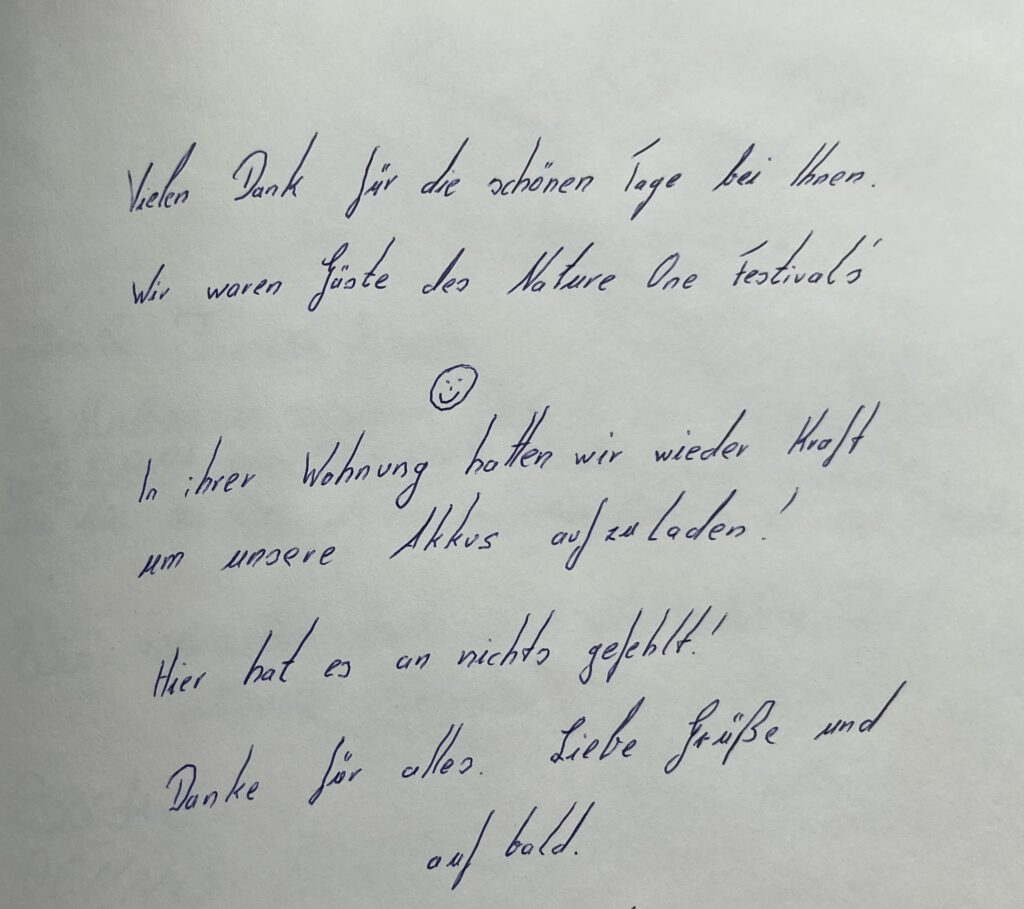 Vielen Dank für die schönen Tage bei Ihnen.
Wir waren Gäste des Nature One Festival's
In ihrer Wohnung hatten wir wieder Kraft
um unsere Akkus aufzuladen!
Hier hat es an nichts gefehlt!
Danke für alles. Liebe Grüße und
auf bald.